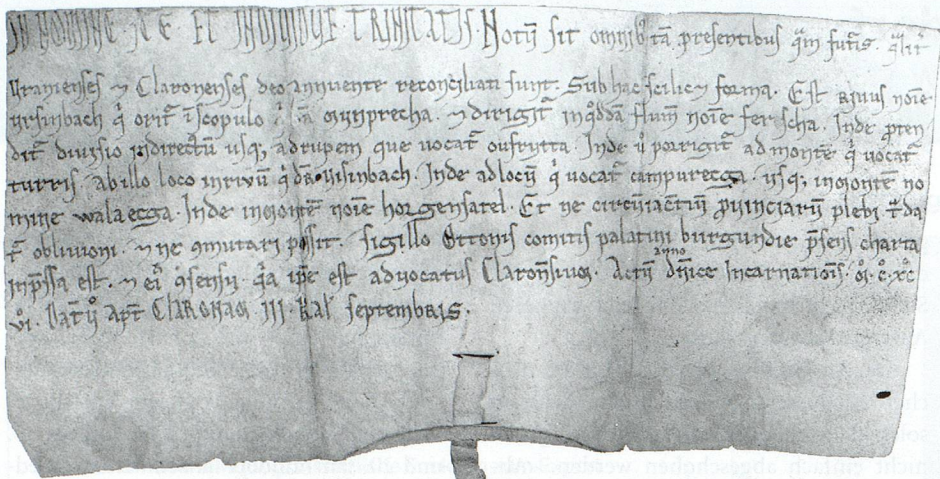 IN NOMINE SCE ET INDIVIDUE TRINITATIS. Notū sit omnibꝫ tā presentibus q̄m futīs. qlit̄
Uranienses ⁊ Claronenses deo annuente reconciliati sunt. Sub hac scilic⁊ forma. Est rivus noīe
ursinbach q̇ orit̄ ī scopulo ⁊dirigit̄ inq̇dā flum̄ noīe ferscha. Inde p̄ten
dit̄ divisio indirectū usqꝫ adrupem que vocat̄ oufrutta. Inde ů porrigit̄ ad montē q̇ vocat̄
turris. abillo loco inrivū q̇ dr̄ uisinbach. Inde adlocū q̇ vocat̄ campurecga. usqꝫ inmontē no
mine walaecga. Inde inmontē noīe horgensatel. Et ne circūiacētiū p̄uinciarū plebi t̄da
t̄ oblivioni. ⁊ ne ɔmutari possit. sigillo Ottonis comitis palatini burgundie p̄sens charta
inp̄ssa est. ⁊ eī ɔsensu. q̄a ip̄e est advocatus Claronēsium. Actū anno dn̄ice Incarnationīs. ꝏ. c̊. xc̊
vi. Datū apt̄ CLARONAM III. Kal̄ septembris.